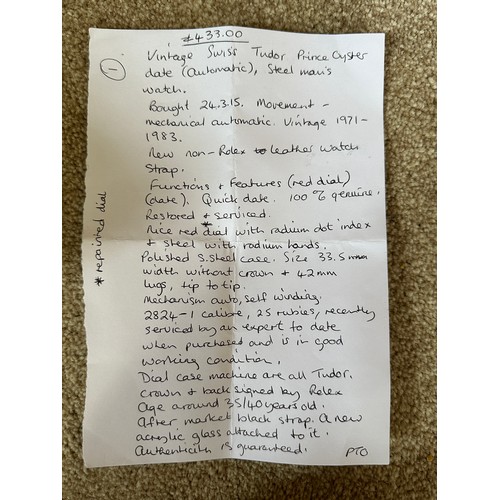 £433.00
① Vintage Swiss Tudor Prince Oyster
date (automatic), Steel man's
watch.
Bought 24.3.15. Movement -
mechanical automatic. Vintage 1971-
1983.
New non-Rolex leather watch
Strap.
Functions & Features (red dial)
(date). Quick date. 100% genuine.
Restored & serviced.
Nice red *dial with radium dot index
& steel with radium hands.
Polished S.steel case. Size 33.5mm
width without crown & 42mm
lugs, tip to tip.
Mechanism auto, self winding.
2824-1 calibre, 25 rubies, recently
serviced by an expert to date
when purchased and is in good
working condition.
Dial case machine are all Tudor.
Crown & back signed by Rolex
Age around 35/40 years old.
After market black strap. A new
acrylic glass attached to it.
Authenticity is guaranteed. PTO
* repainted dial